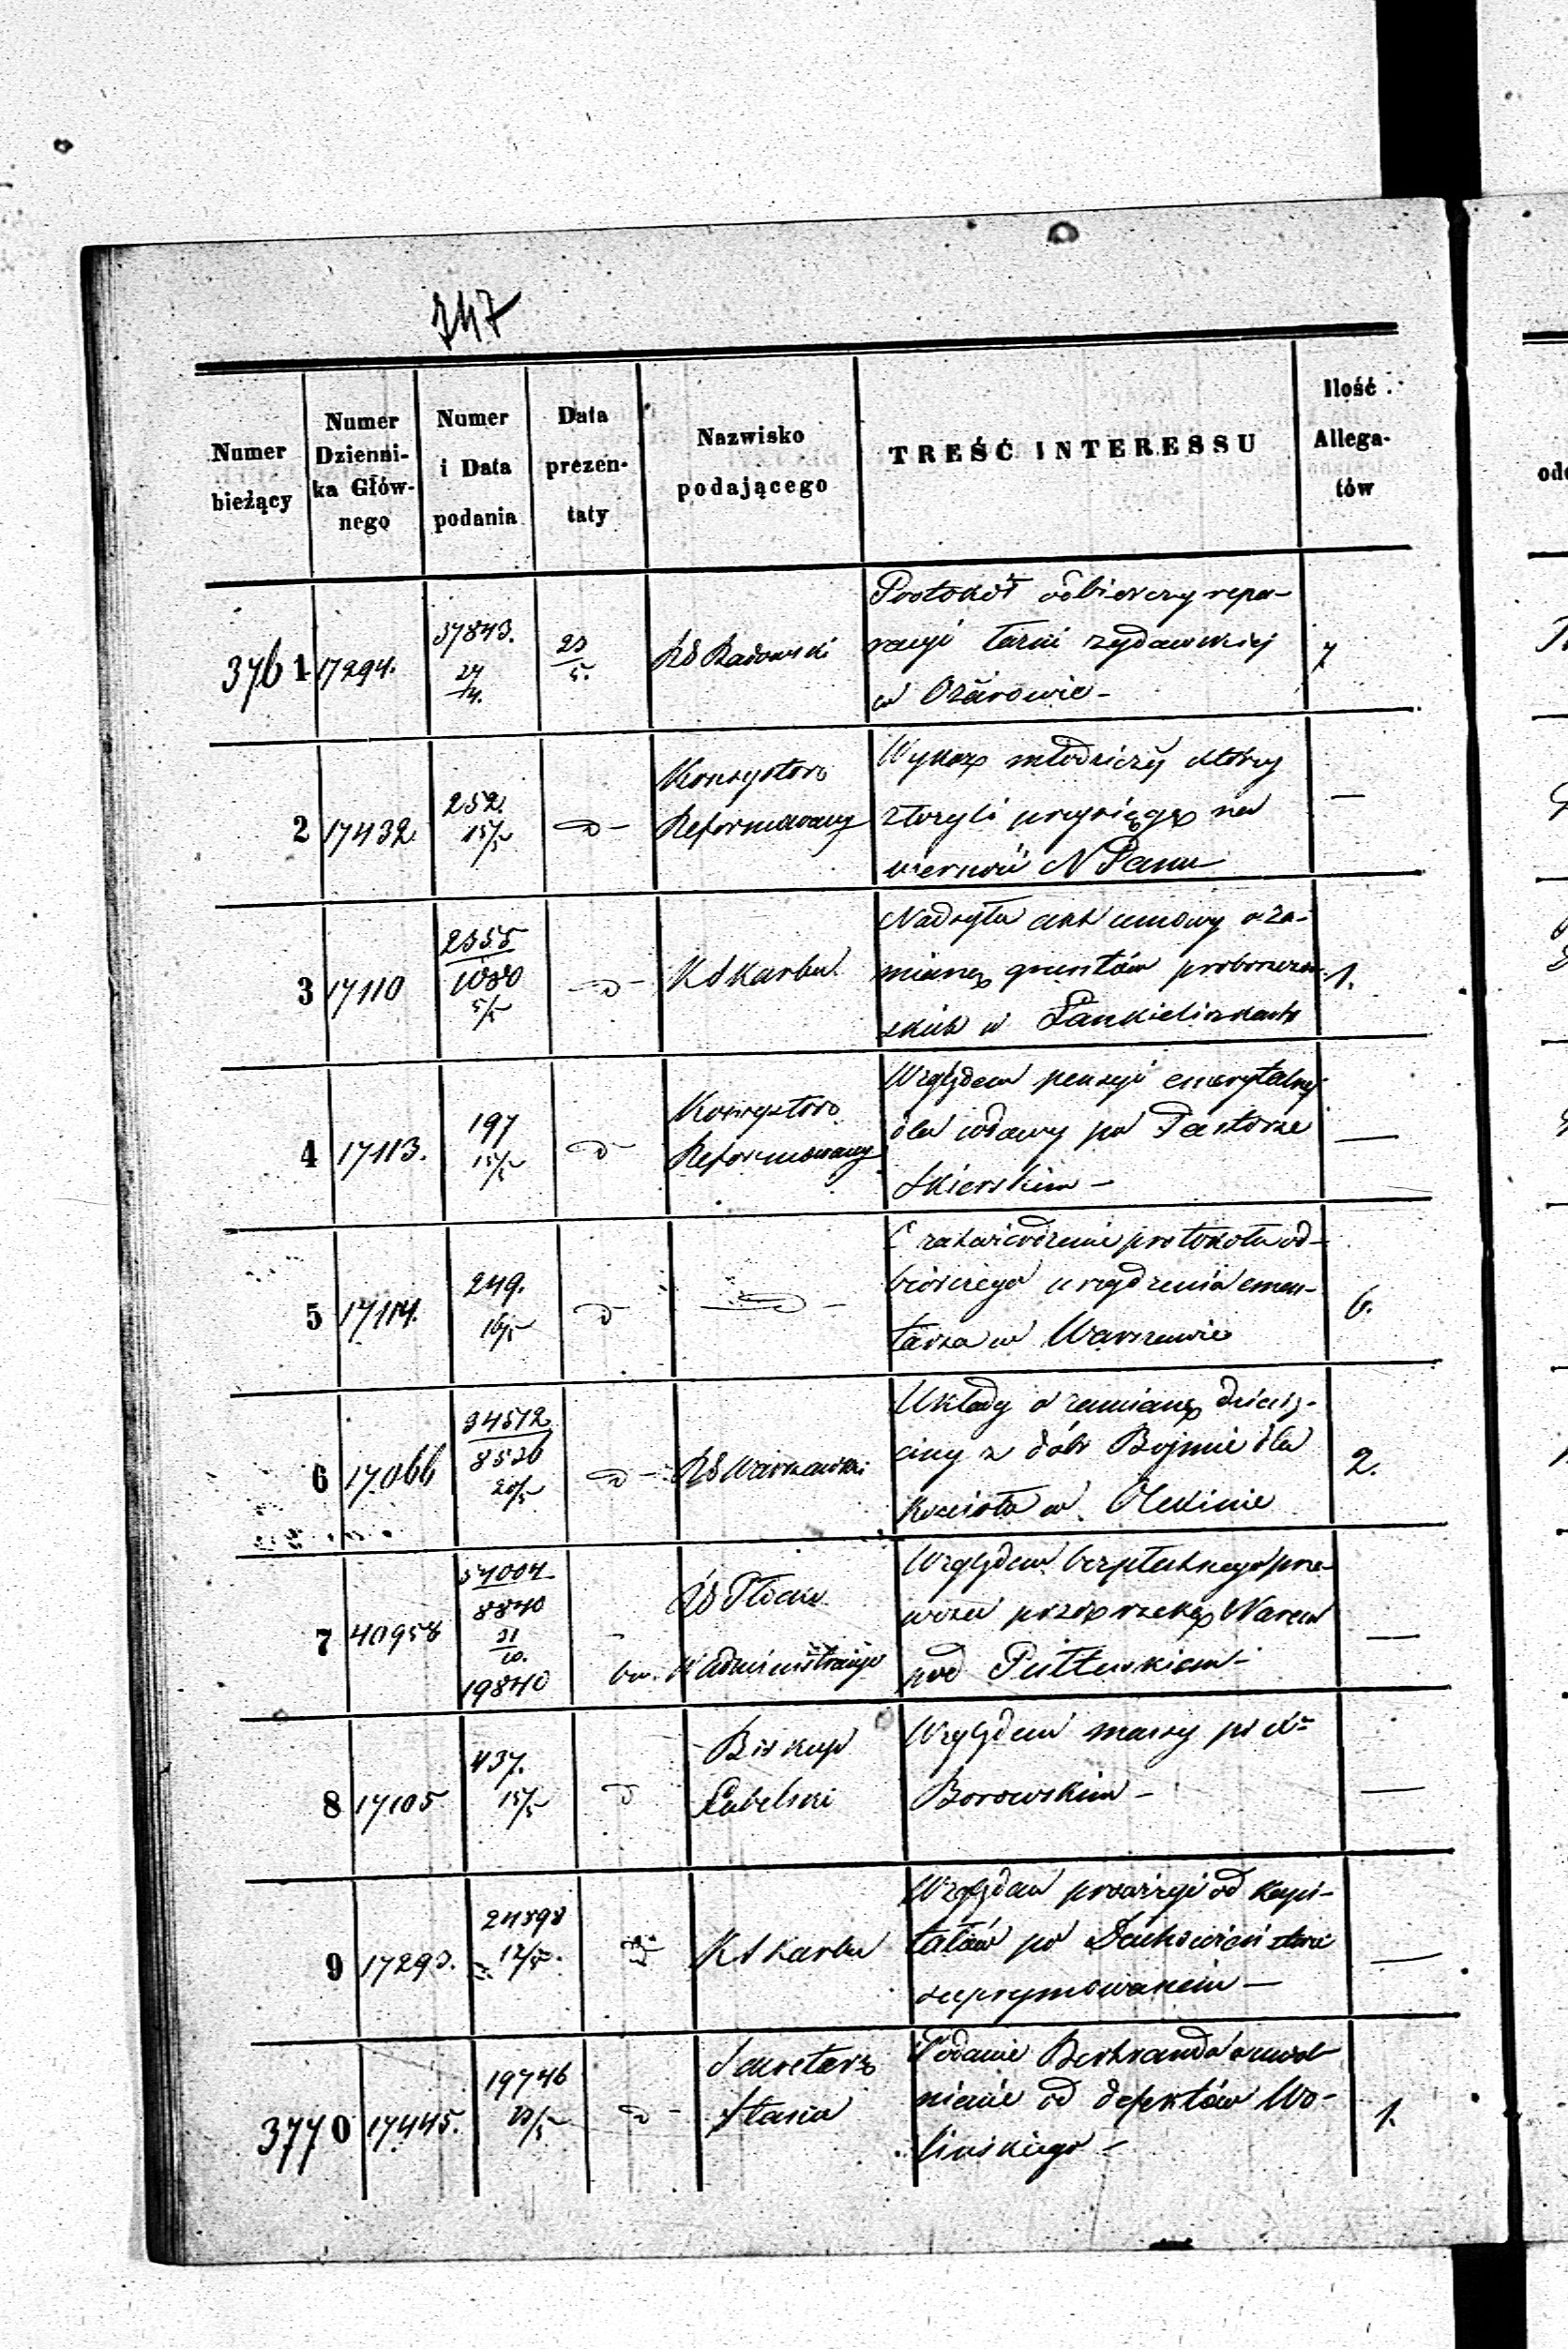 747
Numer bieżący
Numer Dzienni-ka Głów-nego
Numer i Data podania
Data prezen-taty
Nazwisko podającego
TREŚĆ INTERESSU
Ilość Allega-tów
3761 17294. 37843. 27/4. 23/5. RG Radomski
Protokół odbiorczy repa-
racyi łaźni żydowskiej
w Ożarowie - 7
2 17432 252. 15/5 D - Konsystorz Reformowany
Wykaz młodzieży którzy
złożyli przysięgę na
wierność N Panu -
3 17110 2355/1080 5/5 D - K Skarbu
Nadsyła akt umowy o za-
mianę gruntów probosczow-
skich w Pankieliszkach 1.
4 17113. 197 15/5 D - Konsystorz Reformowany
Względem pensyi emerytalnej
dla wdowy po Pastorze
Skierskim - —
5 17114. 249. 16/5 D — D -
O zatwierdzenie protokołu od-
biorczego urządzenia cmen-
tarza w Warszawie 6.
6 17066 34512/8526 20/5 D - RG Warszawski
Układy o zamianę dziesię-
ciny z dóbr Bojmie dla
kościoła w Oleksinie 2.
7 40958 54004/8840 31/10. 19840 RG Płocki
W Administracyi
Względem bezpłatnego prze-
wozu przez rzekę Narew
pod Pułtuskiem - —
8 17105 437. 15/5 D Biskup Lubelski
Względem massy po Xe
Borowskim - —
9 17293. 24898 12/5. K Skarbu
Względem prowizyi od kapi-
tałów po Duchowieństwie
suprymowanem — —
3770 17445. 19746 20/5 D - Sekretarz Stanu
Podanie Bertranda o uwol-
nienie od defektów Wo-
lińskiego - 1.